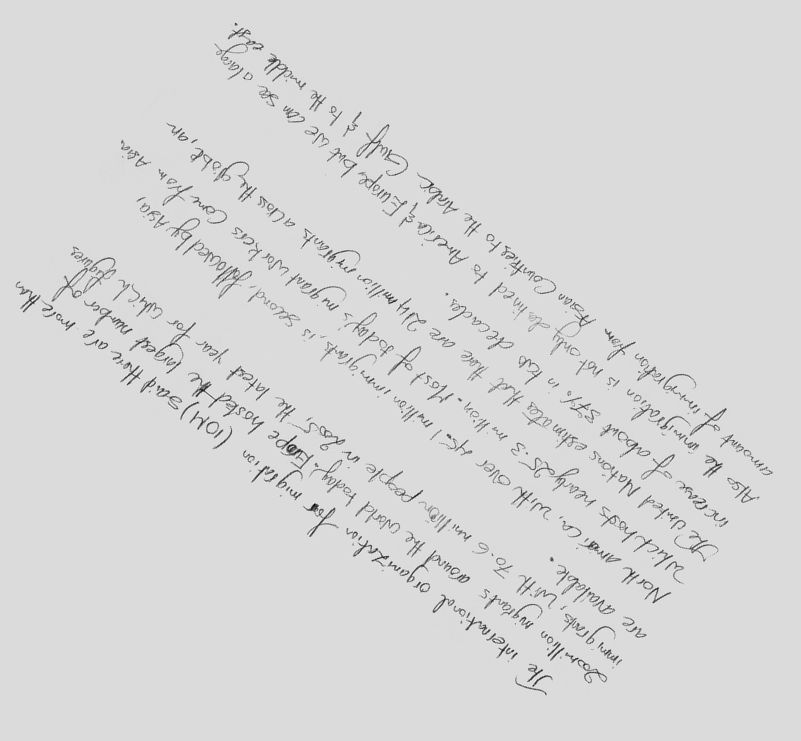 The international organization for migration (IOM) said there are more than
200million migrants around the world today. Europe hosted the largest number of
immigrants, with 70.6 million people in 2005, the latest year for which figures
are available.
North america, with over 45.1 million immigrants, is second, followed by Asia,
which hosts nearly 25.3 million. Most of today's migrant workers come from Asia.
The United Nations estimates that there are 214 million migrants across the globe, an
increase of about 37% in two decades.
Also the immigration is not only destined to America & Europe, but we can see a large
amount of immigration from Asian Countries to the Arabic Gulf & to the middle east.